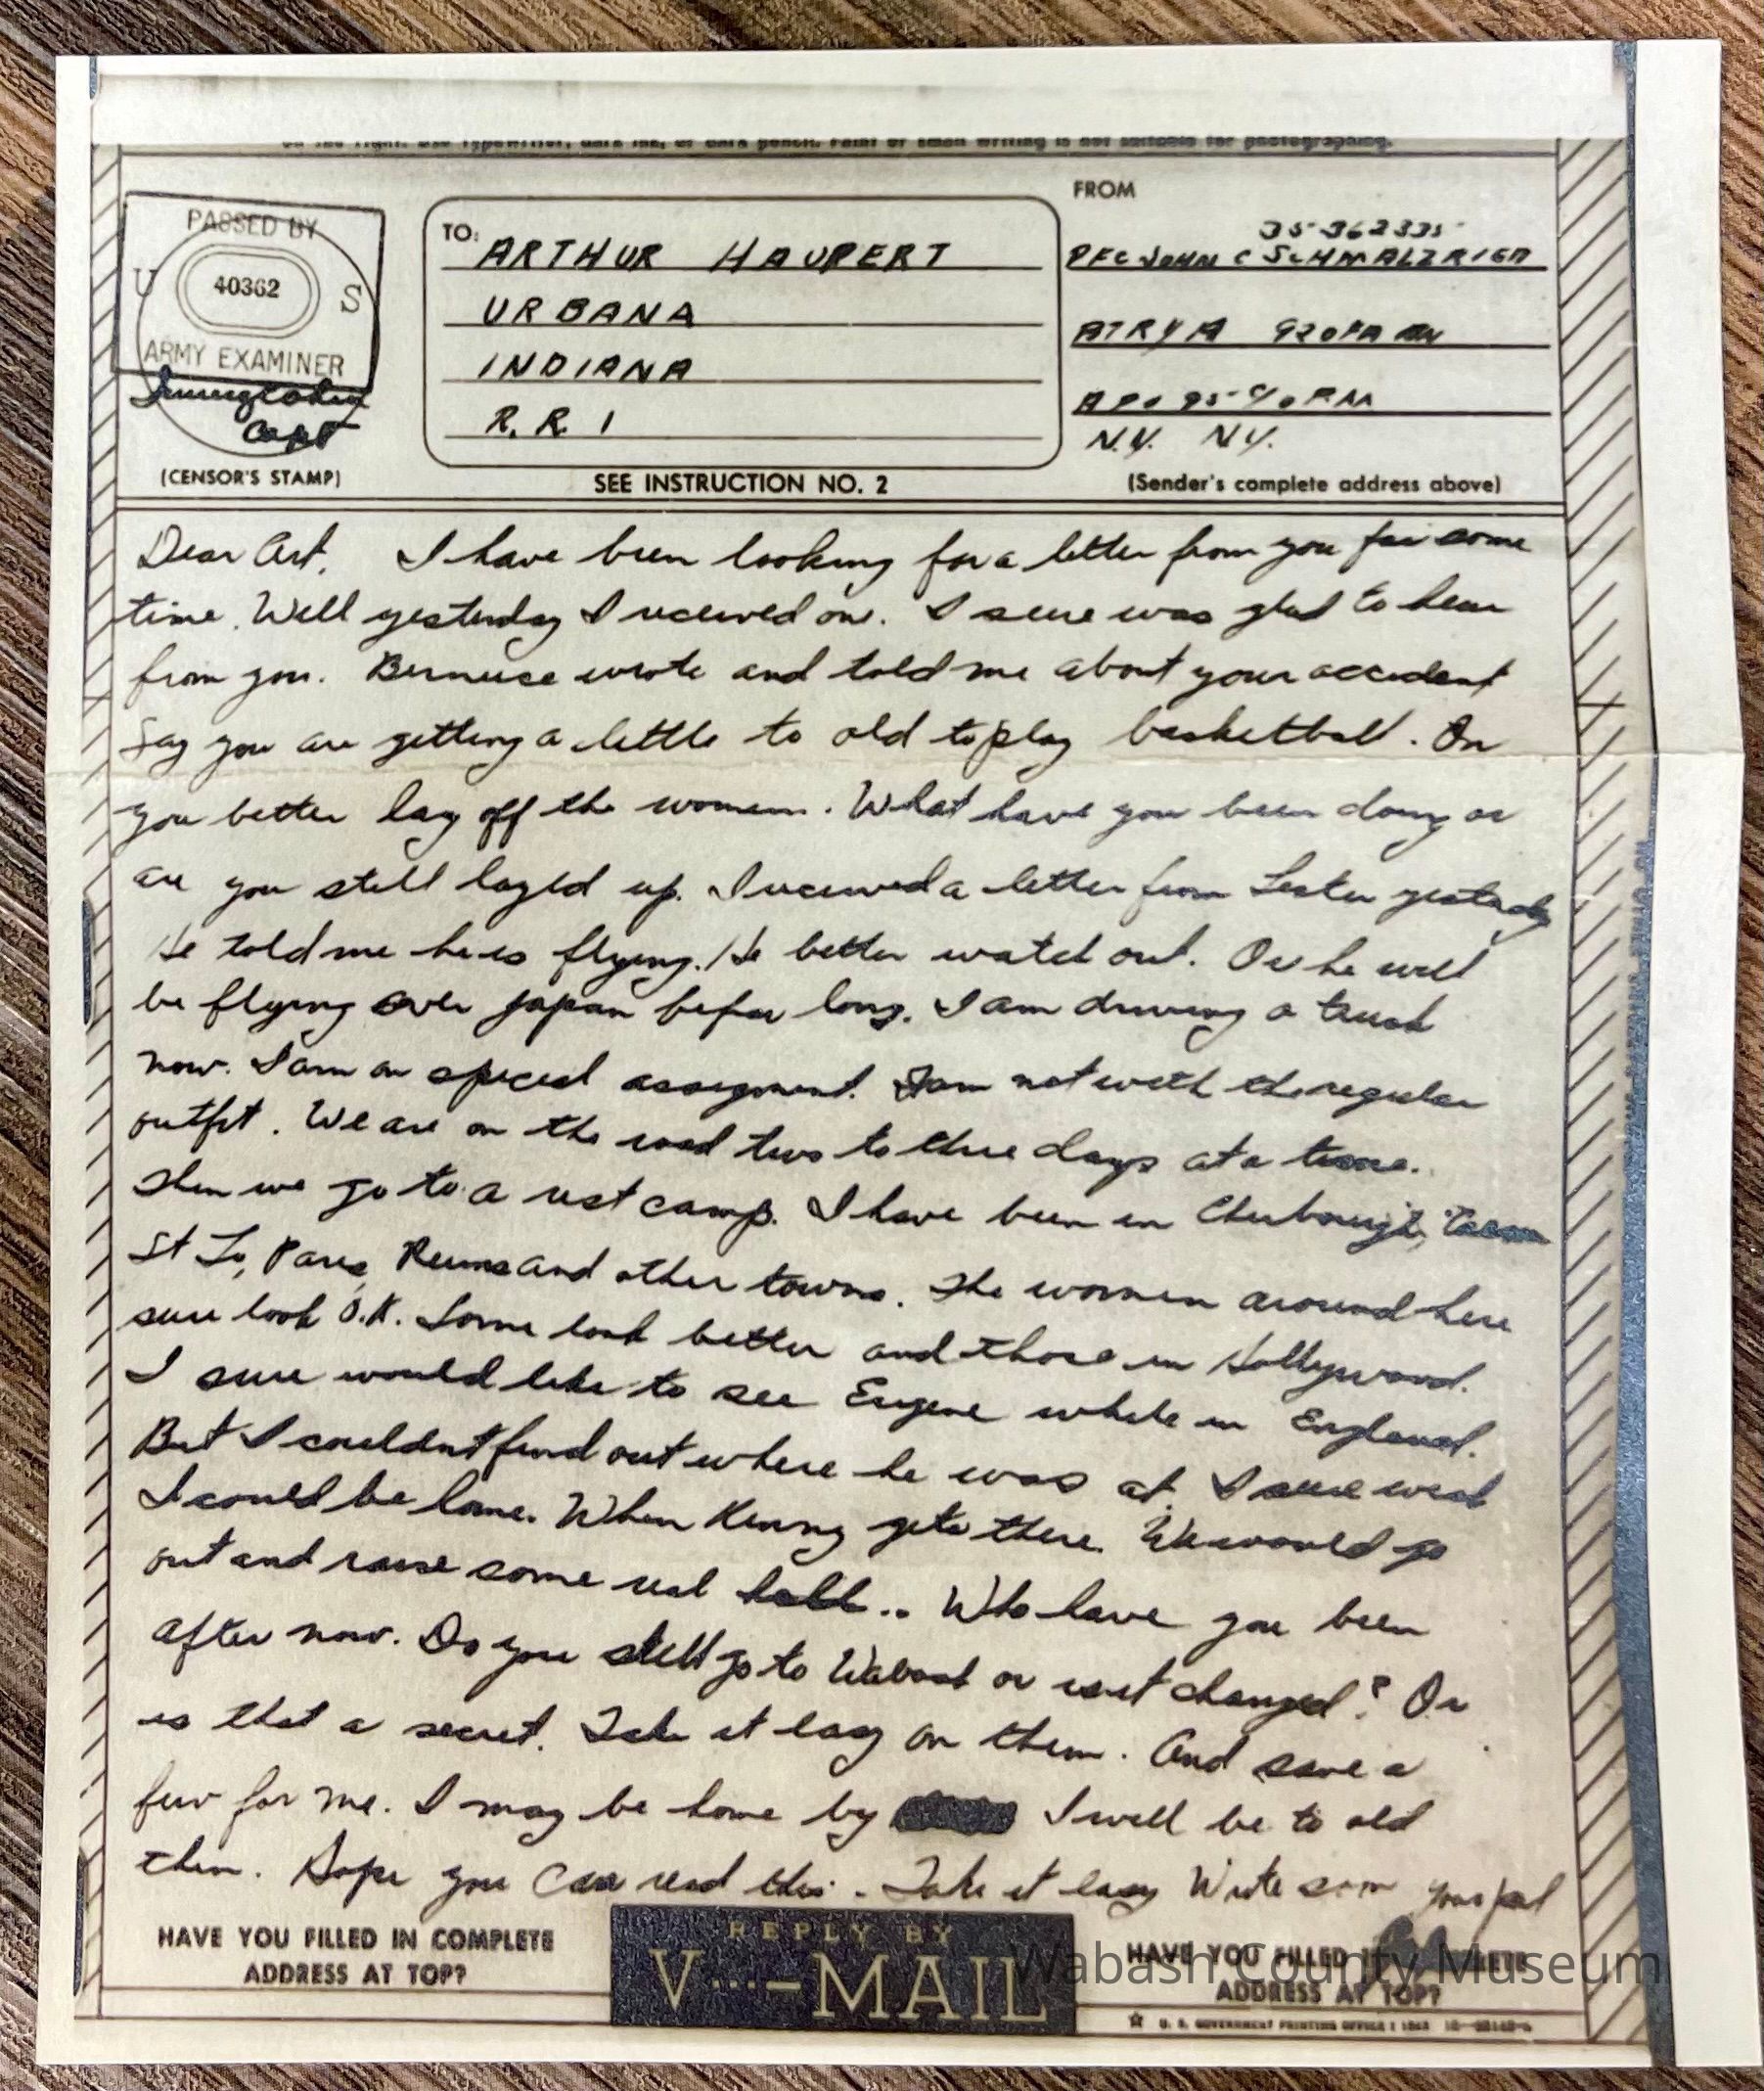 on the right. Use typewriter, dark ink, or dark pencil. Faint or small writing is not suitable for photographing.
PASSED BY
U S
40362
ARMY EXAMINER
Capt
(CENSOR'S STAMP)
TO:
ARTHUR HAUPERT
URBANA
INDIANA
R.R. 1
SEE INSTRUCTION NO. 2
FROM
35-362335
PFC JOHN C SCHMALZRIED
BTRY A 920 FA BN
APO 95 % P.M
N.Y. N.Y.
(Sender's complete address above)
Dear Art. I have been looking for a letter from you for some
time. Well yesterday I received one. I sure was glad to hear
from you. Berneice wrote and told me about your accident
Say you are getting a little to old to play basketball. Or
you better lay off the women. What have you been doing or
are you still layed up. I received a letter from Lester yesterday
He told me he is flying. He better watch out. Or he will
be flying over Japan before long. I am driving a truck
now. I am on special assigment. I am not with the regular
outfit. We are on the road two to three days at a time.
Then we go to a rest camp. I have been in Cherbourgh,
St Lo, Paris, Reims and other towns. The women around here
sure look O.K. Some look better and those in Hollywood.
I sure would like to see Eugene while in England.
But I couldnt find out where he was at. I sure wish
I could be home. When Kenny gets there. We would go
out and raise some real hell.. Who have you been
after now. Do you still go to Wabash or isn't changed? Or
is that a secret. Take it easy on them. And save a
few for me. I may be home by I will be to old
then. Hope you can read this. Take it easy Write soon your pal
HAVE YOU FILLED IN COMPLETE
ADDRESS AT TOP?
REPLY BY
V···—MAIL
HAVE YOU FILLED IN COMPLETE
ADDRESS AT TOP?
Wabash County Museum
☆ U. S. GOVERNMENT PRINTING OFFICE : 1943